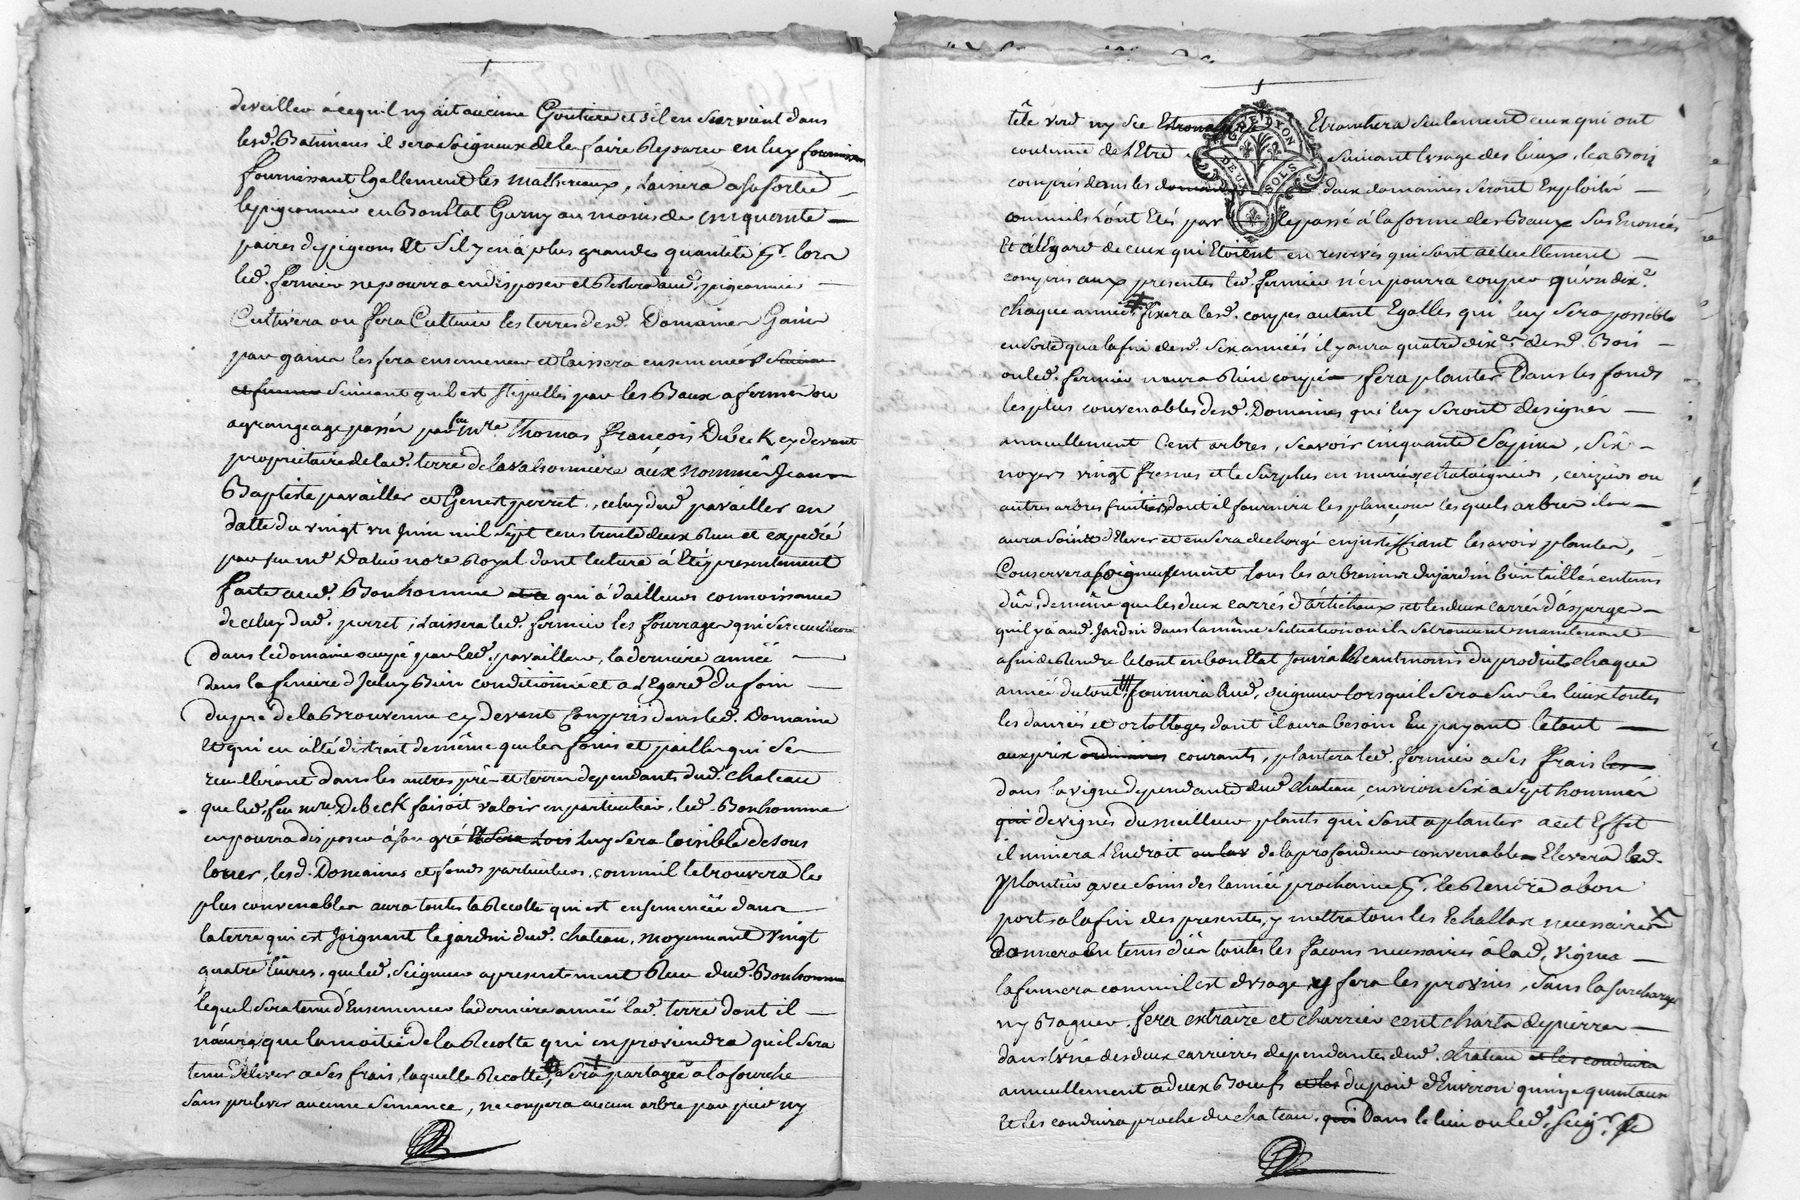 de veiller à ce quil ny ait aucune Goutiere et s'il en survient dans
lesd. Batimens il sera soigneux de les faire Reparer en luy fournissan
fournissant Egallement les mathereaux, Laissera a sa sortie
le pigeonnier en Bon Etat Garny au moins de cinquante
paires de pigeons Et s'il y en à plus grande quantité pr. lors
led. fermier ne pourra en disposer et Restera aud. pigeonnier
Cultivera ou fera Cultiver les terres desd. Domaines Gain
par gain les fera ensemencer et laissera ensemencées
et fumées Suivant quil est stipullés par les Baux a ferme ou
agrangeage passés par feu mre Thomas françois Debeck cy devant
proprietaire de lad. terre de la valsonniere aux nommés Jean
Baptiste pavailler et Genest perret, celuy dud. pavailler en
datte du vingt un Juin mil Sept cens trente deux Reçu et expedié
par feu me Dalié nore Royal dont lecture à Eté presentement
faite aud. Bonhomme et a qui à dailleurs connoissance
de celuy dud. perret, Laissera led. fermier les fourrages qui se recueilleront
dans le domaine occupé par led. pavailler, la derniere année
dans la feniere d'Iceluy Bien conditionné et a L'Egard du foin
du pré de la Brouvenne cy devant Compris dans led. Domaine
et qui en a été distrait de même que les foins et pailles qui se
recueilliront dans les autres prés et terres dependants dud. chateau
que led. feu mre Debeck faisoit valoir en particulier, led. Bonhomme
en pourra disposer à son gré Et sera Lois Luy sera loisible de sous
louer lesd. Domaines et fonds particuliers, comm'il le trouvera le
plus convenables aura toute la Recolte qui est ensemencée dans
la terre qui est joignant le jardin dud. chateau, moyennant vingt
quatre livres, que led. Seigneur a presentement Reçu dud. Bonhomme
lequel sera tenu d'Ensemencer la derniere année lad. terre dont il
n'aura que la moitié de la Recolte qui en proviendra qu'il sera
tenu de lever a ses frais, laquelle Recolte, sera partagée a la fourche
Sans prelever aucune semence, ne coupera aucun arbre par pied ny
tête verd ny sec Etronchera seulement ceux qui ont
coutume de L'Etre Suivant l'usage des lieux, les Bois
compris dans les deux domaines seront Exploités
comm'ils L'ont Etés par le passé à la forme des Baux sus Enoncés
Et à l'Egard de ceux qui Etoient en reserves qui sont actuellement
compris aux presentes led. fermier n'en pourra couper qu'un dixe.
chaque année, fixera lesd. coupes autant Egalles qui luy sera possible
ensorte qu'a la fin desd. six années il y aura quatre dixes. desd. Bois
ou led. fermier n'aura Rien coupé, fera planter Dans les fonds
les plus convenables desd. Domaines qui luy seront designés
annuellement Cent arbres, sçavoir cinquante Sapins, Six
noyers vingt fresnes et le surplus en muriers chataigners, ceriziers ou
autres arbres fruitiers dont il fournira les plançons lesquels arbres il
aura soin d'Elever et en sera dechargé en justiffiant les avoir plantés,
Conservera soigneusement tous les arbres nins du jardin bien taillés en tems
dûs, de même que les deux carrés d'artichaux, et les deux carrés d'asperges
qu'il y à aud. Jardin dans la même situation ou ils se trouvent maintenant
afin de Rendre le tout en bon Etat Jouira neantmoins du produit chaque
année du tout, fournira aud. seigneur lorsqu'il sera sur les lieux toutes
les danrées et ortollages dont il aura besoin En payant le tout
aux prix ordinaires courants, plantera led. fermier a ses frais les
dans la vigne dependante dud. chateau, environ six a sept hommées
qui de vignes du meilleur plants qui sont a planter a cet Effet
il minera L'Endroit ou les de la profondeur convenables Elevera led.
plantier avec soins des l'année prochaine pr. le Rendre a bon
port a la fin des presentes, y mettra tous les Echallas necessaires
donnera En tems dûs toutes les façons necessaires à lad. vigne
la fumera comm'il est d'usage y fera les provins, sans la surcharger
ny Baguer. fera extraire et charrier cent chars de pierres
dans l'une des deux carrieres dependantes dud. chateau et les conduira
annuellement a deux Bœufs et les du poid d'Environ quinze quintaux
et les conduira proche du chateau, qui Dans le lieu ou led. seigr. se
GNE. DE LYON
DEUX SOLS